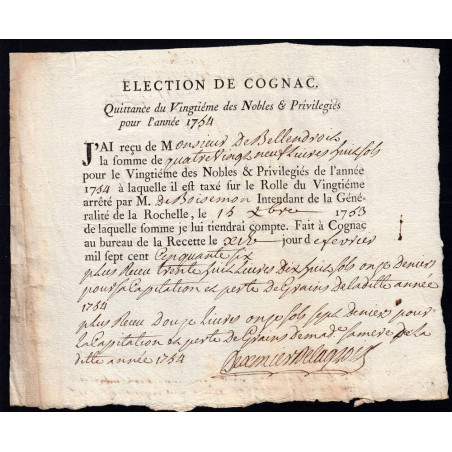 ELECTION DE COGNAC.
Quittance du Vingtiéme des Nobles & Privilegiés
pour l'année 1754
J'AI reçu de Monsieur De Bellendroit
la somme de quatre vingt neuf Livres huit sols
pour le Vingtiéme des Nobles & Privilegiés de l'année
1754 à laquelle il est taxé sur le Rolle du Vingtiéme
arrêté par M. de Boisemon Intendant de la Géné-
ralité de la Rochelle, le 15 xbre 1753
de laquelle somme je lui tiendrai compte. Fait à Cognac
au bureau de la Recette le jour de fevrier
mil sept cent Cinquante six
plus Receu trente huit Livres Dix huit sols onze deniers
pour la Capitation et perte de Grains de laditte année
1754
plus Receu Douze Livres onze sols sept deniers pour
la Capitation et perte de Grains de mad.e sa mere de la
ditte année 1754